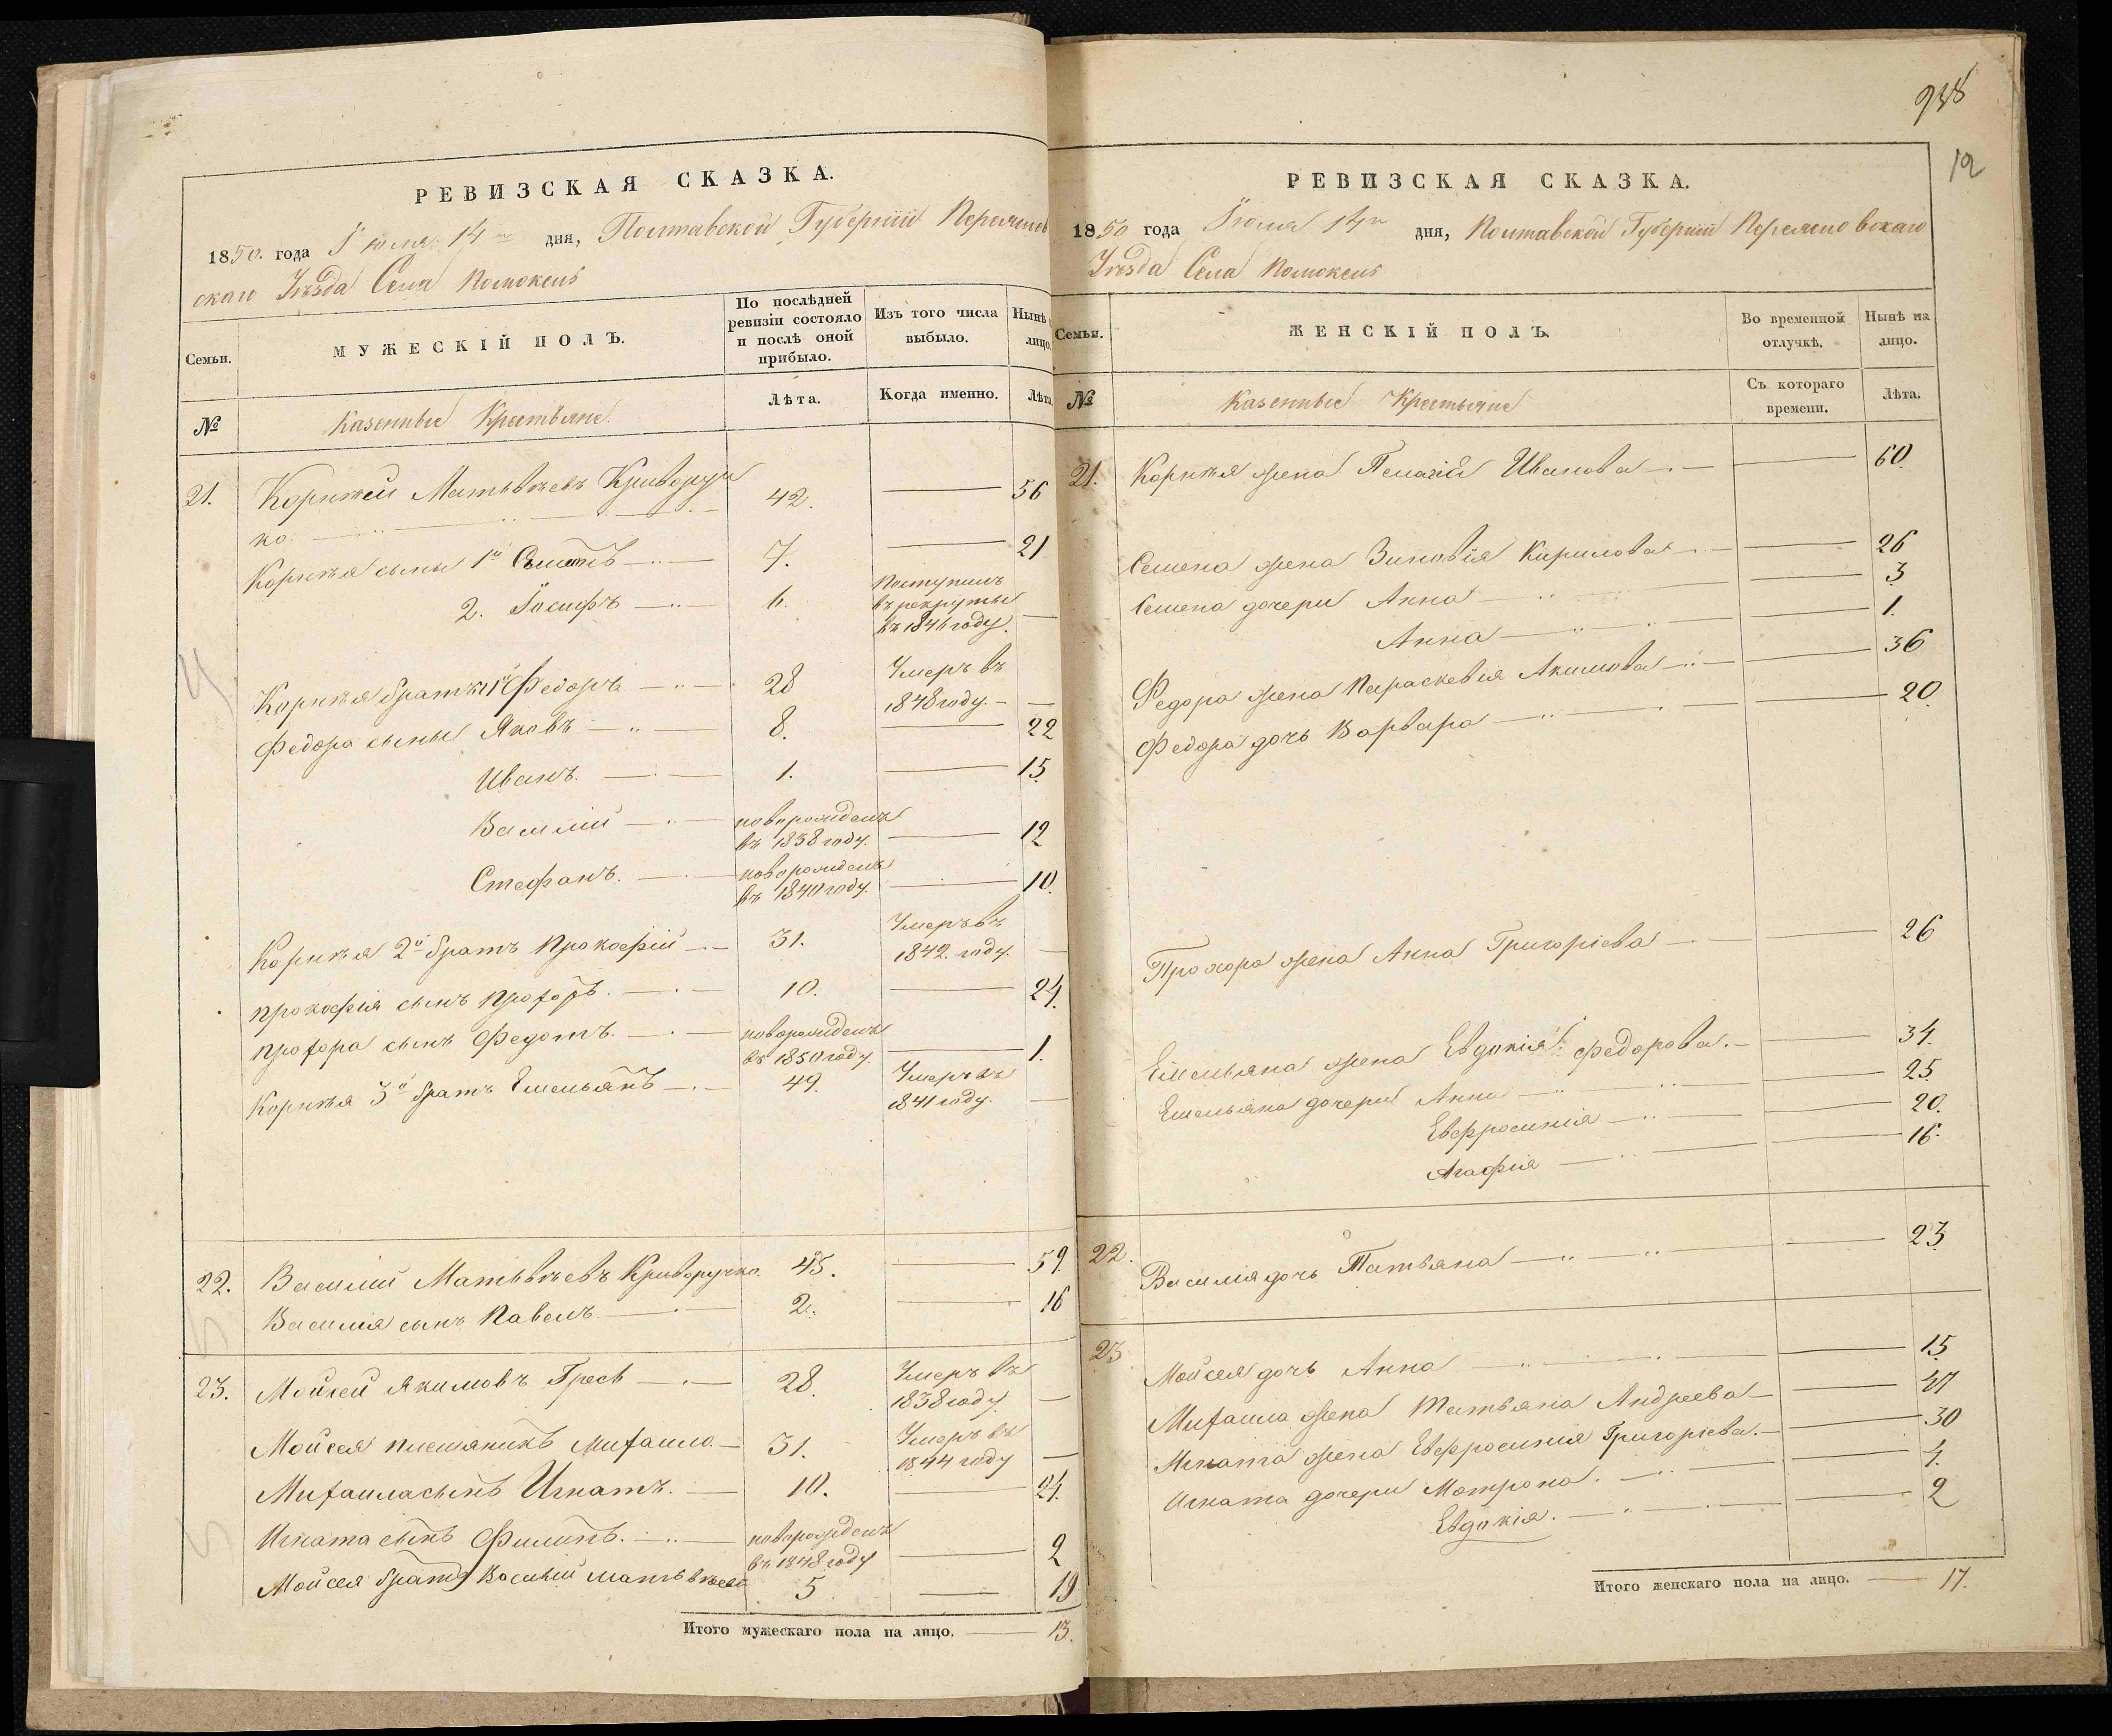 РЕВИЗСКАЯ СКАЗКА.
1850. года Іюля 14 дня, Полтавской Губерніи Переяслов
скаго Уѣзда Села Помоклей
Семьи.
МУЖЕСКІЙ ПОЛЪ.
По послѣдней ревизіи состояло и послѣ оной прибыло.
Изъ того числа выбыло.
Нынѣ лицо.
№
Казенные Крестьяне.
Лѣта.
Когда именно.
Лѣта
21. Корнѣй Матвѣевъ Криворуч 42. — 56
ко.
Корнѣя сыны 1й Семенъ 7. — 21
2. Іосифъ 6. Поступилъ въ рекруты въ 1846 году. —
Корнѣя братья 1й Федоръ 28 Умеръ въ 1848 году. —
Федора сыны Яковъ 8. — 22
Иванъ. 1. — 15
Василій новорожденъ въ 1838 году. — 12
Стефанъ. новорожденъ въ 1840 году. — 10.
Корнѣя 2й братъ Прокофій 31. Умеръ въ 1842. году. —
Прокофія сынъ Прохоръ. 10. — 24.
Прохора сынъ Федотъ. новорожденъ въ 1850 году. — 1.
Корнѣя 3й братъ Емельянъ 49. Умеръ въ 1841 году. —
22. Василій Матвѣевъ Криворучко. 45. — 59.
Василія сынъ Павелъ 2. — 16
23. Мойсей Якимовъ 28. Умеръ въ 1838 году —
Мойсея племяникъ Михаило 31. Умеръ въ 1844 году —
Михаила сынъ Игнатъ. 10. — 24.
Игната сынъ Филипъ. новорожденъ въ 1848 году — 2
Мойсея братъ Василій Матвѣевъ 5 — 19
Итого мужескаго пола на лицо. — 13.
938
12
РЕВИЗСКАЯ СКАЗКА.
1850 года Іюля 14 дня, Полтавской Губерніи Переясловскаго
Уѣзда Села Помоклей
Семьи.
ЖЕНСКІЙ ПОЛЪ.
Во временной отлучкѣ.
Нынѣ на лицо.
№
Казенные Крестьяне
Съ котораго времени.
Лѣта.
21. Корнѣя жена Пелагія Иванова — 60.
Семена жена Зиновія Кирилова — 26
Семена дочери Анна — 3
Анна — 1.
Федора жена Параскевія Акимова — 36
Федора дочь Варвара — 20.
Прохора жена Анна Григоріева — 26
Емельяна жена Евдокія Федорова. — 34.
Емельяна дочери Анна — 25.
Евфросинія — 20.
Агафія — 16.
22. Василія дочь Татьяна — 23.
23. Мойсея дочь Анна — 15.
Михаила жена Татьяна Андреева — 47
Игната жена Евфросинія Григоріева. — 30
Игната дочери Мотрона. — 4.
Евдокія. — 2
Итого женскаго пола на лицо. — 17.